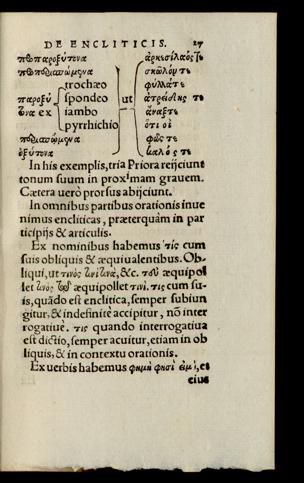 DE ENCLITICIS. 27
προπαροξύτονα ἀρκεσίλαός τε
προπερισπώμενα σκῶλόν τε
trochæo φύλλά τε
παροξύ spondeo ut ἀτρείδης τε
τονα ex iambo ἄναξ τε
pyrrhichio ὅτι οἱ
περισπώμενα φῶς τε
ὀξύτονα καλός τε
In his exemplis, tria Priora reijciunt
tonum suum in proximam grauem.
Cætera uerò prorsus abijciunt.
In omnibus partibus orationis inue
nimus encliticas, præterquàm in par
ticipijs & articulis.
Ex nominibus habemus τίς cum
suis obliquis & æquiualentibus. Ob-
liqui, ut τινὸς τινὶ τινὰ, &c. τοῦ æquipol
let τινὸς τῷ æquipollet τινί. τις cum su-
is, quãdo est enclitica, semper subiun
gitur, & indefinitè accipitur, nõ inter
rogatiuè. τις quando interrogatiua
est dictio, semper acuitur, etiam in ob
liquis, & in contextu orationis.
Ex uerbis habemus φημὶ φησὶ εἰμὶ, et
eius